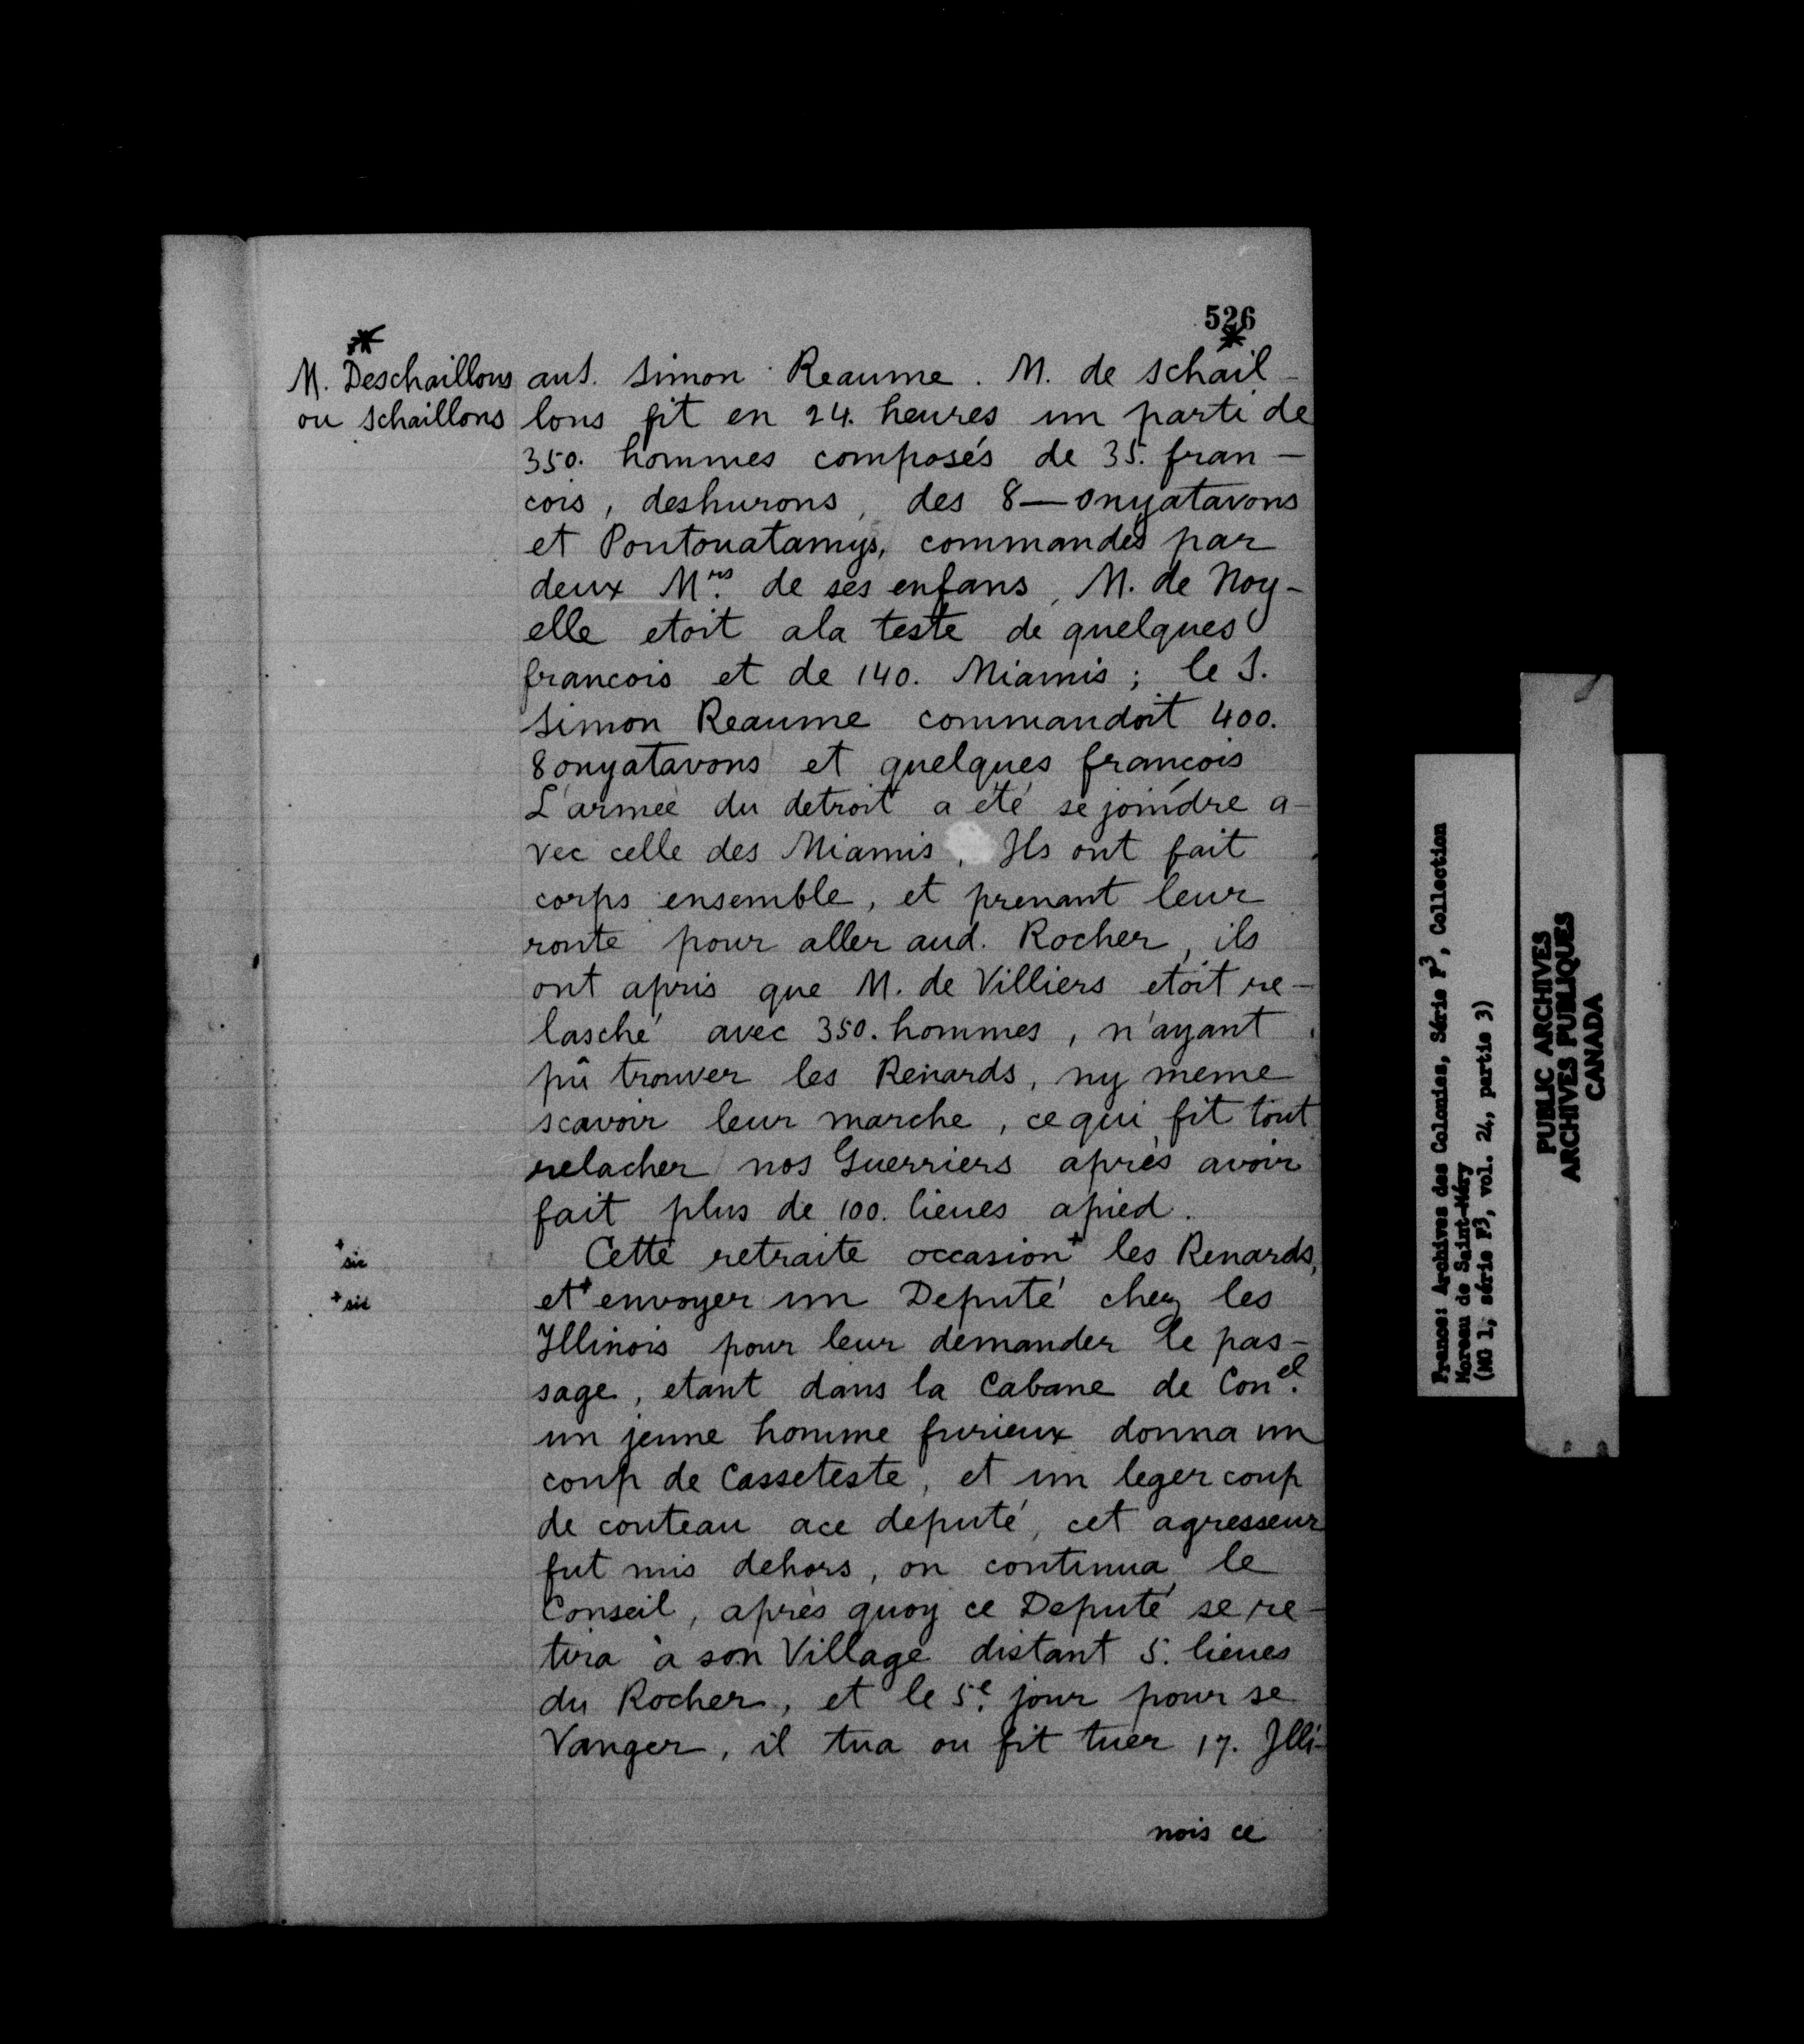 526
*
M. Deschaillons
ou schaillons
*
auS. Simon Reaume. M. de schail-
lons fit en 24. heures un parti de
350. hommes composés de 35. fran-
cois, deshurons, des 8—onyatavons
et Poutouatamys, commandés par
deux Mrs. de ses enfans, M. de Noy-
elle etoit ala teste de quelques
francois et de 140. Miamis; le S.
Simon Reaume commandoit 400.
8onyatavons et quelques françois
L'armeé du detroit a été se joindre a-
vec celle des Miamis, Ils ont fait
corps ensemble, et prenant leur
route pour aller aud. Rocher, ils
ont apris que M. de Villiers etoit re-
lasché avec 350. hommes, n'ayant
pû trouver les Renards, ny meme
scavoir leur marche, ce qui fit tout
relacher nos Guerriers aprés avoir
fait plus de 100. lieues apied.
+
sic
Cette retraite occasion+ les Renards,
+ sic
et+ envoyer un Deputé chez les
Illinois pour leur demander le pas-
sage, etant dans la Cabane de Conel.
un jeune homme furieux donna un
coup de Casseteste, et un leger coup
de couteau ace deputé, cet agresseur
fut mis dehors, on continua le
Conseil, après quoy ce Deputé se re-
tira à son Village distant 5. lieues
du Rocher, et le 5e. jour pour se
Vanger, il tua ou fit tuer 17. Illi-
nois ce
France: Archives des Colonies, Série F3, Collection
Moreau de Saint-Méry
(MG 1, série F3, vol. 24, partie 3)
PUBLIC ARCHIVES
ARCHIVES PUBLIQUES
CANADA